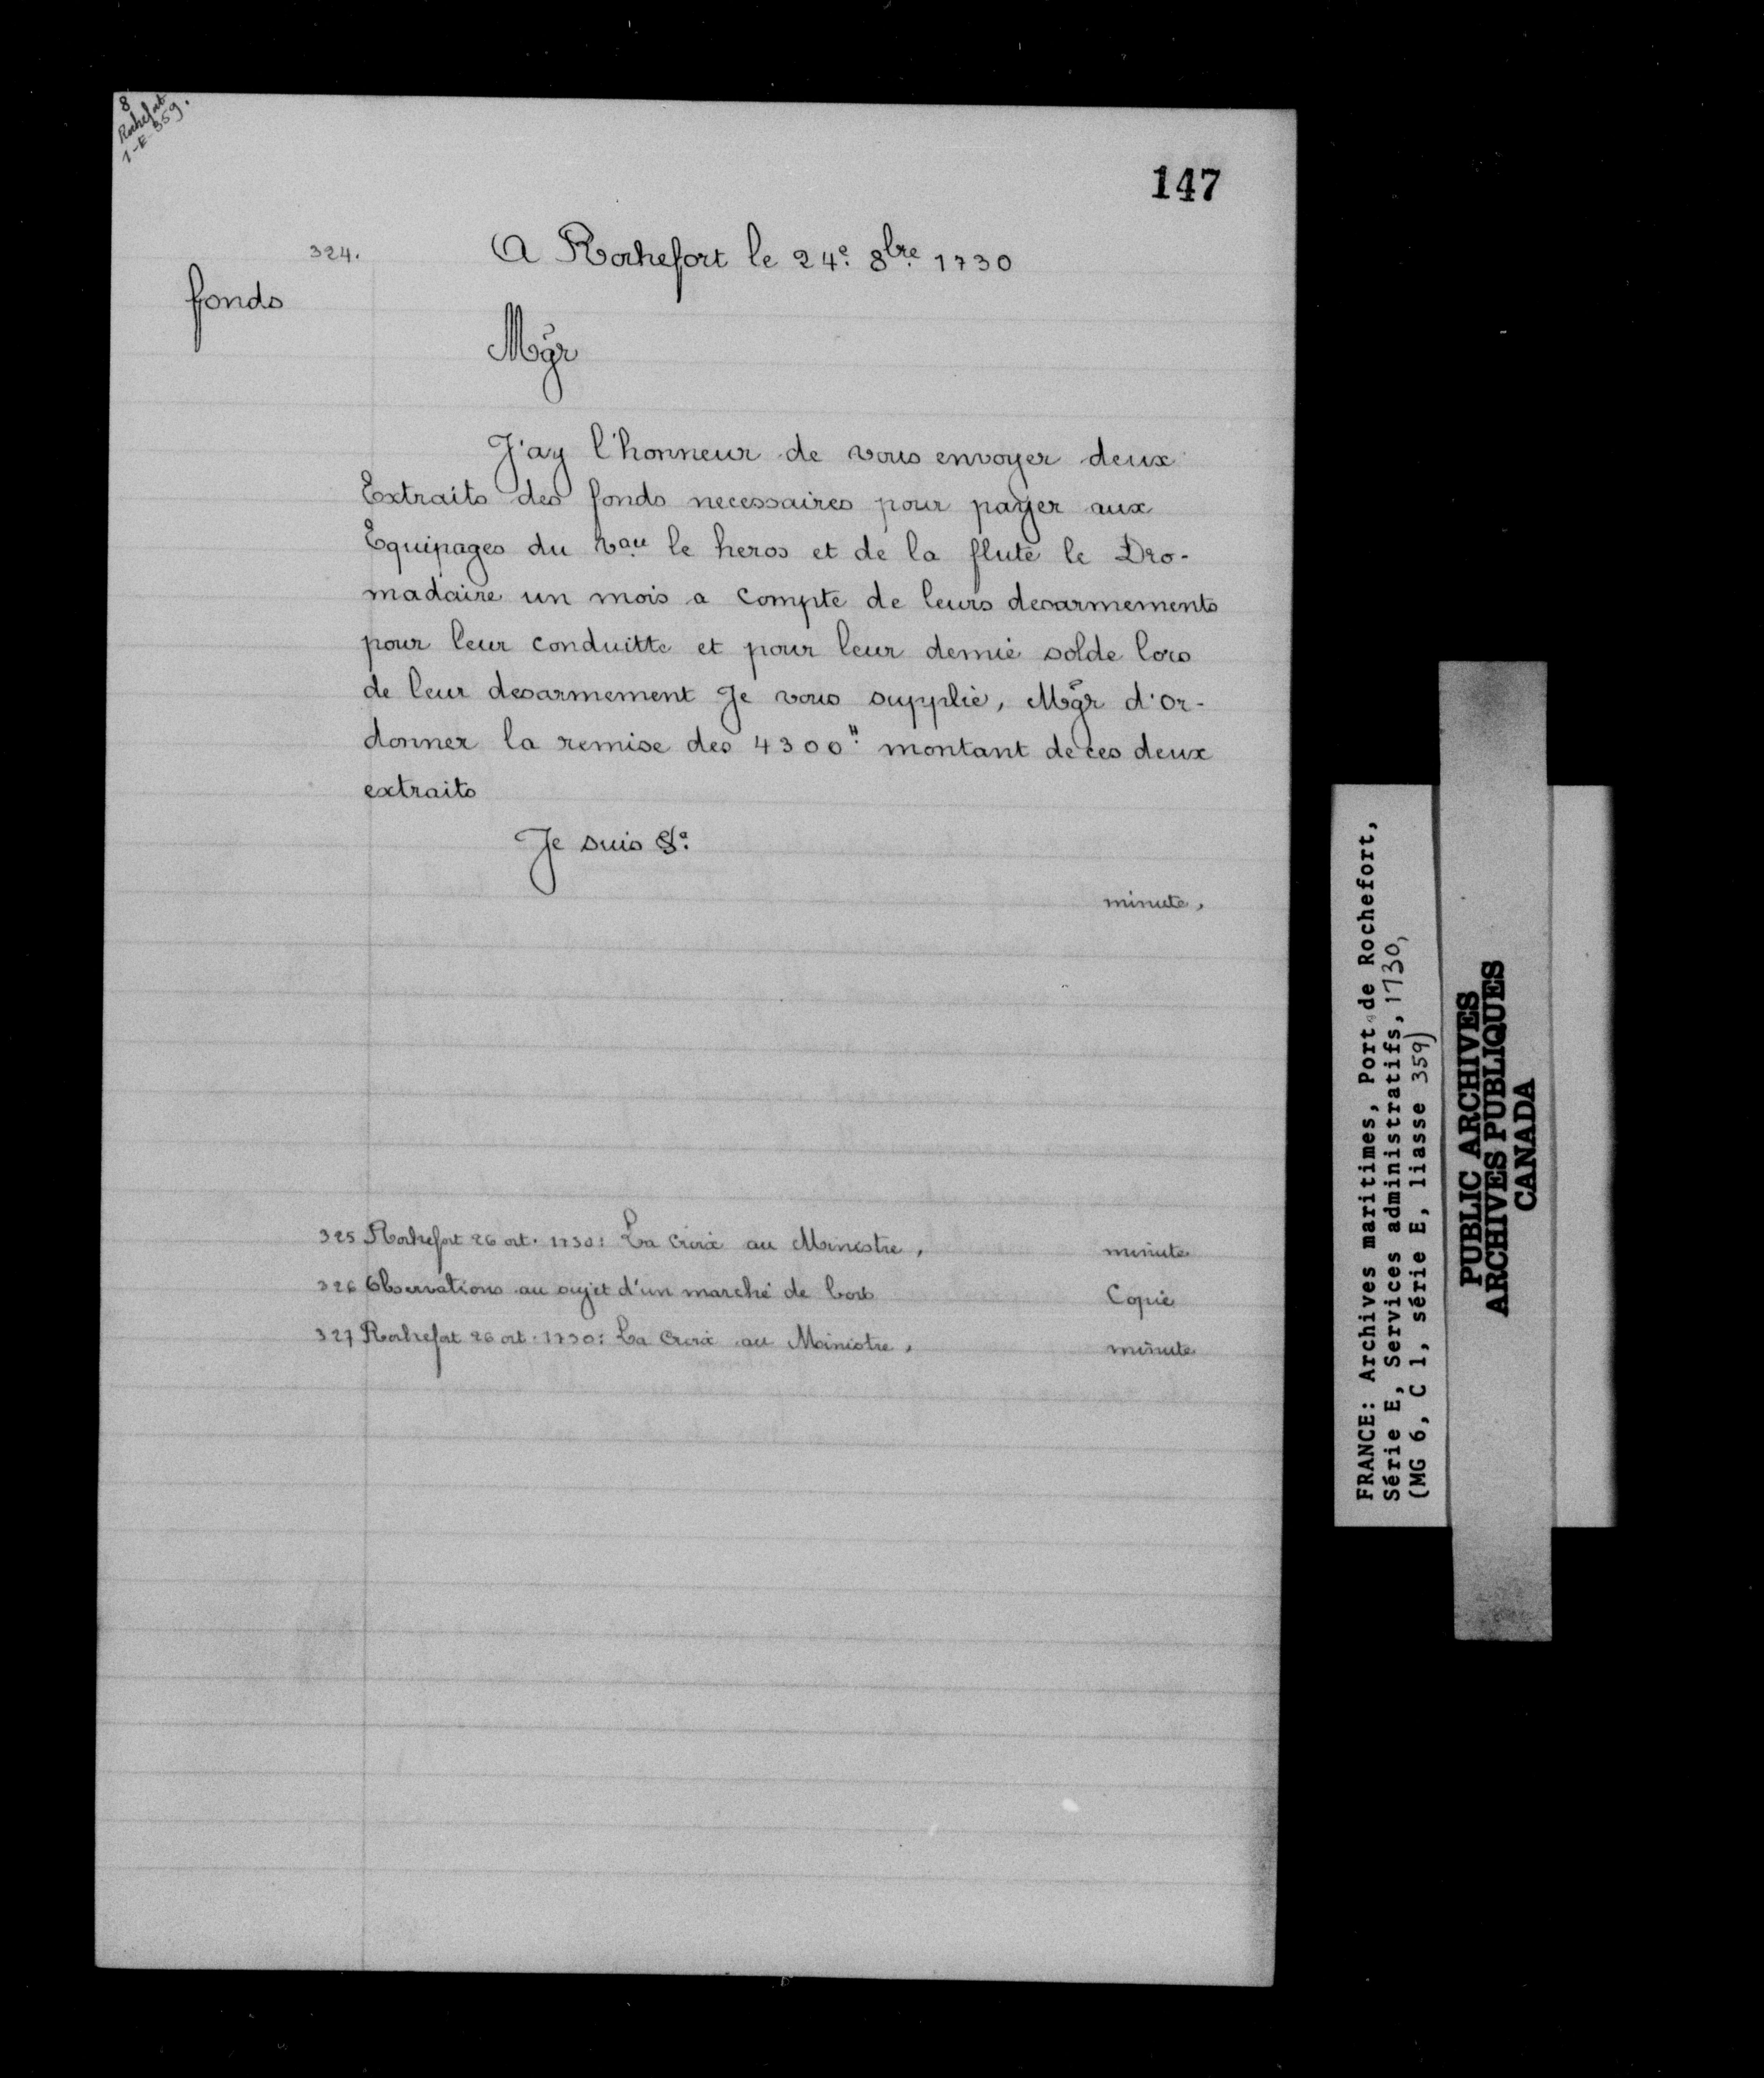 8
Rochefort
1-E-359.
147
324.
A Rochefort le 24e. 8bre 1730
fonds
Mgr
J'ay l'honneur de vous envoyer deux
Extraits des fonds necessaires pour payer aux
Equipages du Vau le heros et de la flute le Dro-
madaire un mois a compte de leurs desarmements
pour leur conduitte et pour leur demie solde lors
de leur desarmement Je vous supplie, Mgr d'or-
donner la remise des 4300" montant de ces deux
extraits
Je suis &a
minute,
325 Rochefort 26 oct. 1730: La Croix au Ministre, minute
326 Observations au sujet d'un marché de bois Copie
327 Rochefort 26 oct. 1730: La Croix au Ministre, minute
FRANCE: Archives maritimes, Port de Rochefort,
Série E, Services administratifs, 1730,
(MG 6, C 1, série E, liasse 359)
PUBLIC ARCHIVES
ARCHIVES PUBLIQUES
CANADA